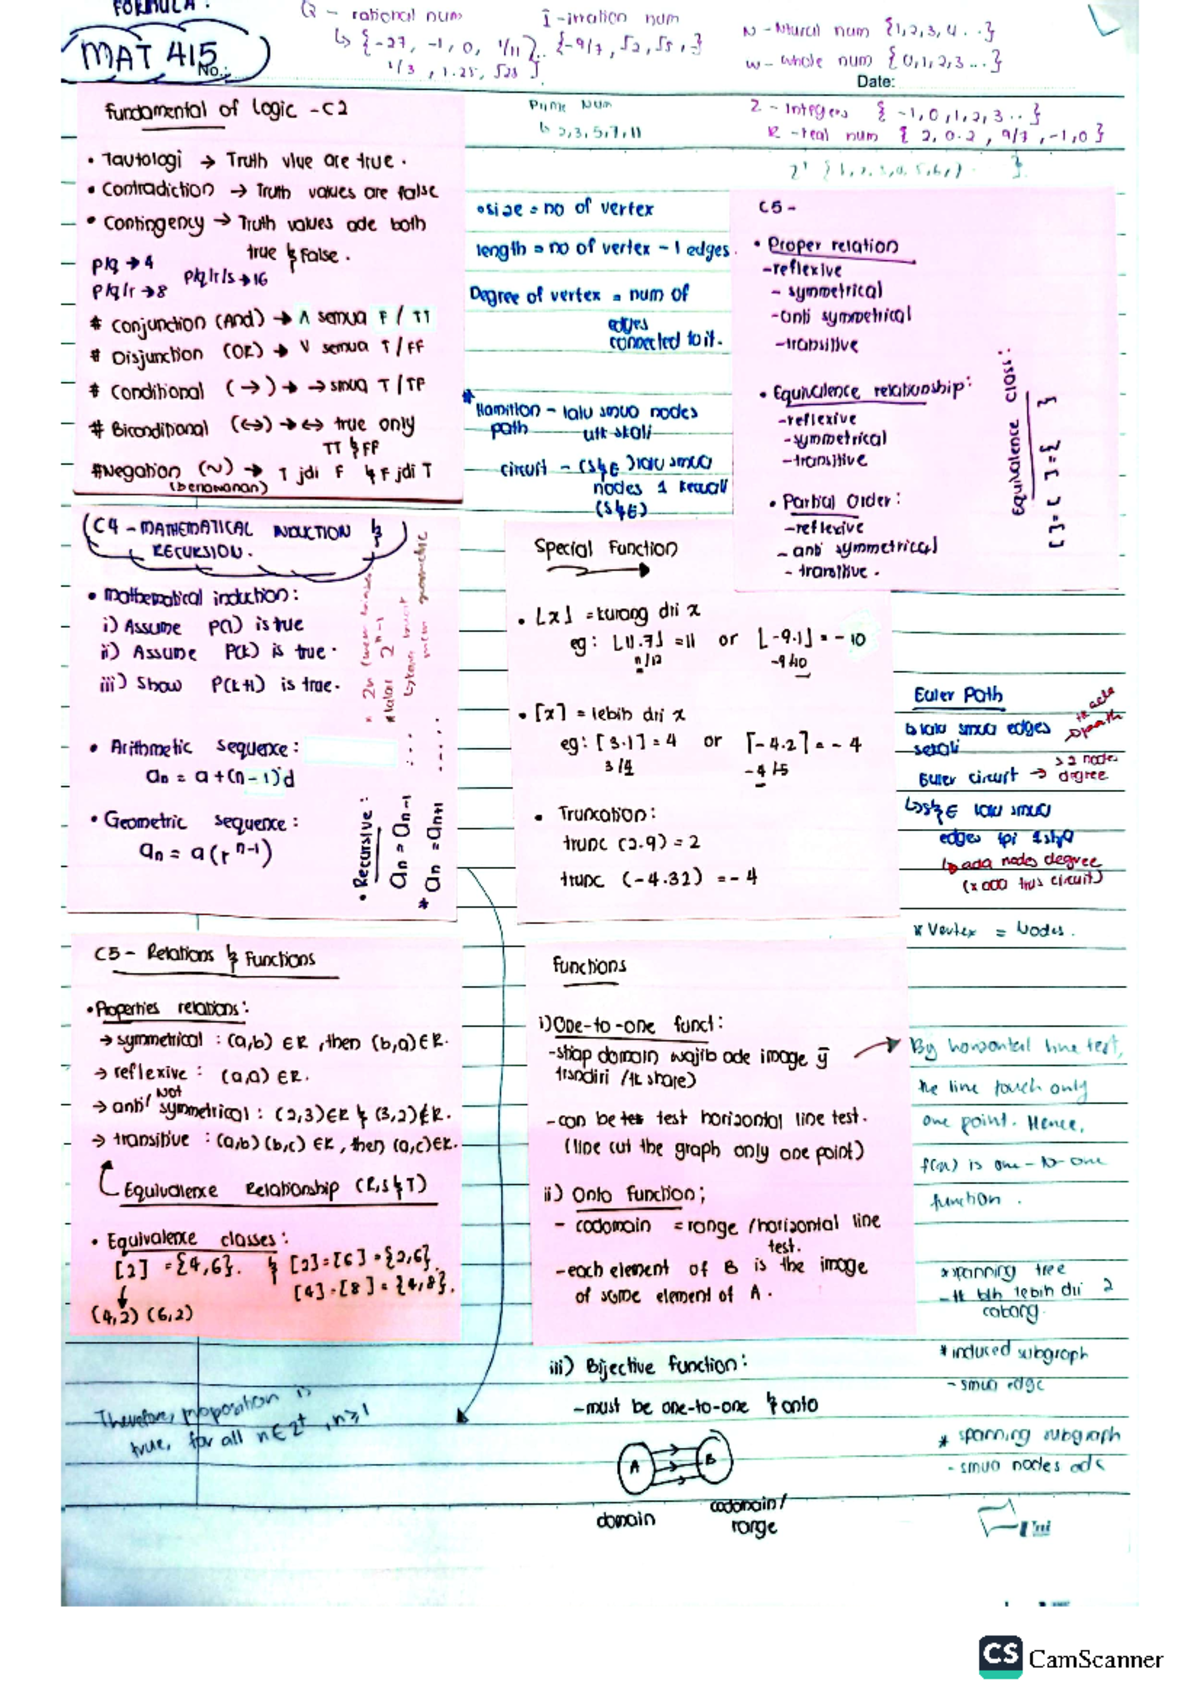 FORMULA :
MAT 415
No.:
Q - rational num
↳ {-27, -1, 0, 1/11
1/3 , 1.25, √23 }
I - irration num
{-9/7, √2, √5, }
N - Natural num {1,2,3,4...}
W - whole num {0,1,2,3...}
Date:
Prime Num
↳ 2,3,5,7,11
Z - Integers { -1,0,1,2,3.. }
R - real num { 2, 0.2, 9/7, -1,0 }
Fundamental of logic - C2
• Tautologi → Truth vlue are true.
• Contradiction → Truth values are false
• Contingency → Truth values ade both
true & false.
p/q → 4
p/q/r → 8
p/q/r/s → 16
# Conjunction (And) → ∧ semua F / TT
# Disjunction (OR) → ∨ semua T / FF
# Conditional (→) → → smua T / TF
# Biconditional (↔) → ↔ true only
TT & FF
# Negation (~) → T jdi F & F jdi T
(berlawanan)
• size = no of vertex
length = no of vertex - 1 edges.
Degree of vertex = num of
edges
connected to it.
* Hamilton - lalu smua nodes
path utk skali
circuit - (S&E) lalu smua
nodes 1 kecuali
(S&E)
C5 -
• Proper relation
- reflexive
- symmetrical
- anti symmetrical
- transitive
• Equivalence relationship:
- reflexive
- symmetrical
- transitive
• Partial Order:
- reflexive
- anti symmetrical
- transitive.
Equivalence class:
[ ] = [ ] = { }
(C4 - MATHEMATICAL INDUCTION &
RECURSION.
• mathematical induction:
i) Assume P(1) is true
ii) Assume P(k) is true.
iii) Show P(k+1) is true.
• Arithmetic sequence:
an = a + (n-1)d
• Geometric sequence:
an = a(r^n-1)
• Recursive:
an = an-1 ....
* an = an+1 ....
Special Function
• ⌊x⌋ = kurang dri x
eg: ⌊11.7⌋ = 11 or ⌊-9.1⌋ = -10
11/12
-9/-10
• ⌈x⌉ = lebih dri x
eg: ⌈3.1⌉ = 4 or ⌈-4.2⌉ = -4
3/4
-4/-5
• Truncation:
trunc (2.9) = 2
trunc (-4.32) = -4
Euler Path
↳ lalu smua edges
sekali
Euler circuit → degree
↳ S&E lalu smua
edges tpi 1 shj
↳ ada nodes degree
* Vertex = Nodes.
C5 - Relations & Functions
• Properties relations:
→ symmetrical : (a,b) ∈ R, then (b,a) ∈ R.
→ reflexive : (a,a) ∈ R.
→ anti/Not symmetrical : (2,3) ∈ R & (3,2) ∉ R.
→ transitive : (a,b)(b,c) ∈ R, then (a,c) ∈ R.
Equivalence Relationship (R,S & T)
• Equivalence classes:
[2] = {4,6}. & [2] = [6] = {2,6}.
[4] = [8] = {4,8}.
(4,2) (6,2)
Functions
i) One-to-one funct:
- stiap domain wajib ade image yg
trsndiri / tk share)
- can be tes test horizontal line test.
(line cut the graph only one point)
ii) Onto function;
- codomain = range / horizontal line
test.
- each element of B is the image
of some element of A.
By horizontal line test,
the line touch only
one point. Hence,
f(x) is one-to-one
function.
* spanning tree
- tk blh lebih dri 2
cabang.
* induced subgraph
- smua edge
* spanning subgraph
- smua nodes ade
iii) Bijective function:
- must be one-to-one & onto
A
B
domain
codomain/
range
Therefore, proposition is
true, for all n ∈ Z+, n ≥ 1
CS CamScanner